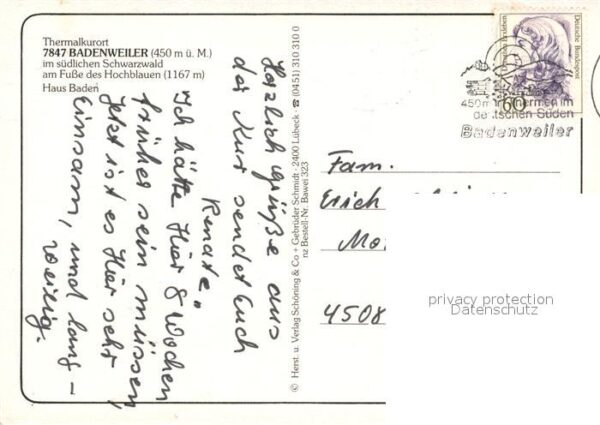 Thermalkurort
7847 BADENWEILER (450 m ü. M.)
im südlichen Schwarzwald
am Fuße des Hochblauen (1167 m)
Haus Baden
Herzlich Grüße aus
der Kur sendet Euch
Renate"
Ich hätte Hier 8 Wochen
früher sein müssen,
Jetzt ist es Hier sehr
Einsam, und lang-
weilig.
© Herst. u. Verlag Schöning & Co + Gebrüder Schmidt · 2400 Lübeck · ☎ (04 51) 310 310 0
nz Bestell-Nr. Bawei 323
Deutsche Bundespost
60
450m Thermen im
deutschen Süden
Badenweiler
Fam.
Erich
4508
privacy protection
Datenschutz